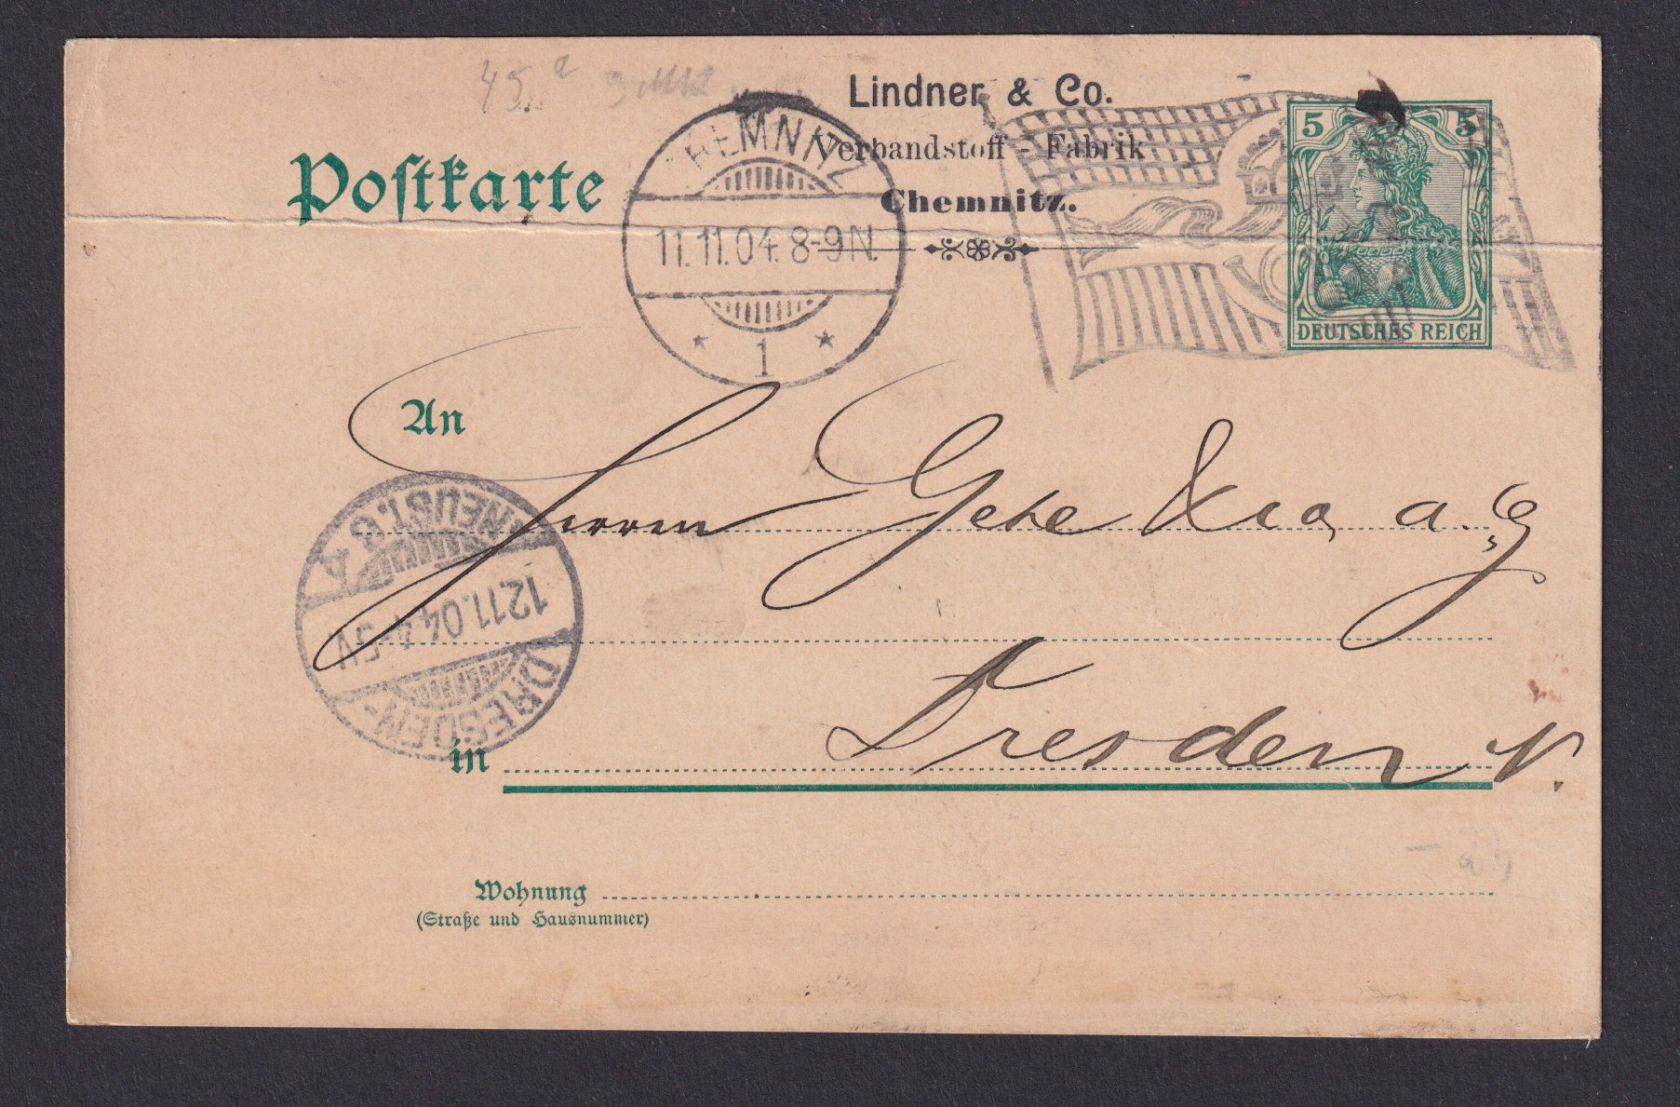 45 a
Lindner & Co.
Verbandstoff - Fabrik
Chemnitz.
Postkarte
CHEMNITZ
11.11.04. 8-9N.
* 1 *
5 5
DEUTSCHES REICH
An
Herrn Gehe & Co, a. G
DRESDEN-NEUST. 6
12.11.04. 4-5V
in Dresden N.
Wohnung
(Straße und Hausnummer)